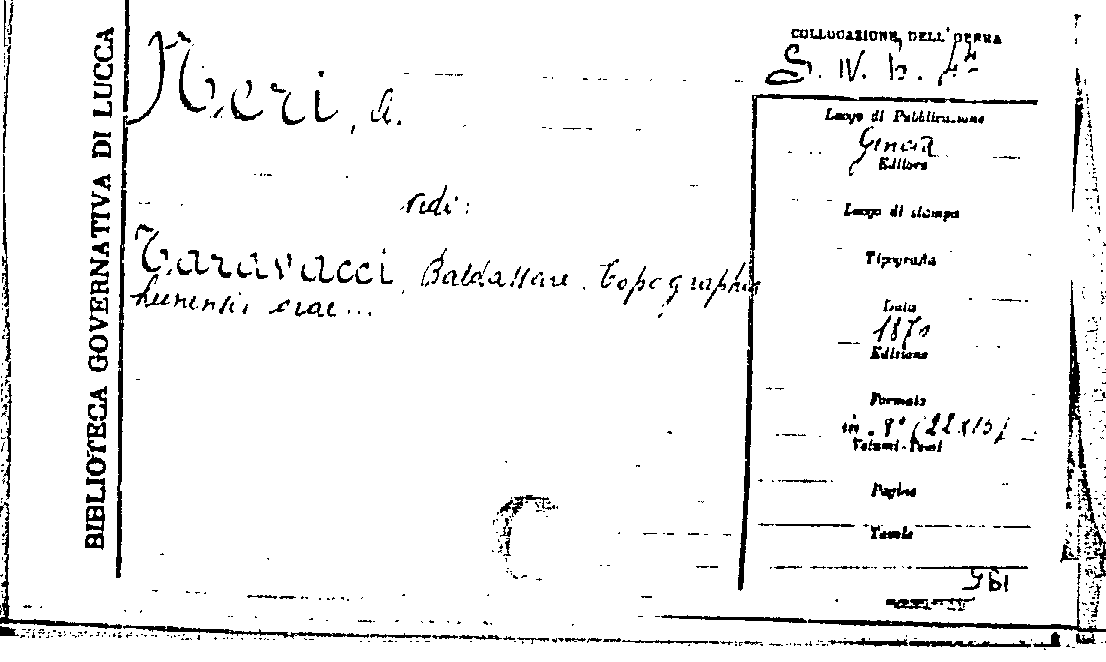 BIBLIOTECA GOVERNATIVA DI LUCCA
Neri, A.
vedi:
Taravacci, Baldassare. Topographia
lunensis orae...
COLLOCAZIONE DELL'OPERA
S. IV. b.
Luogo di Pubblicazione
Genova
Editore
Luogo di stampa
Tipografia
Data
1870
Edizione
Formato
in 8° (22x15)
Volumi-Tomi
Pagine
Tavole